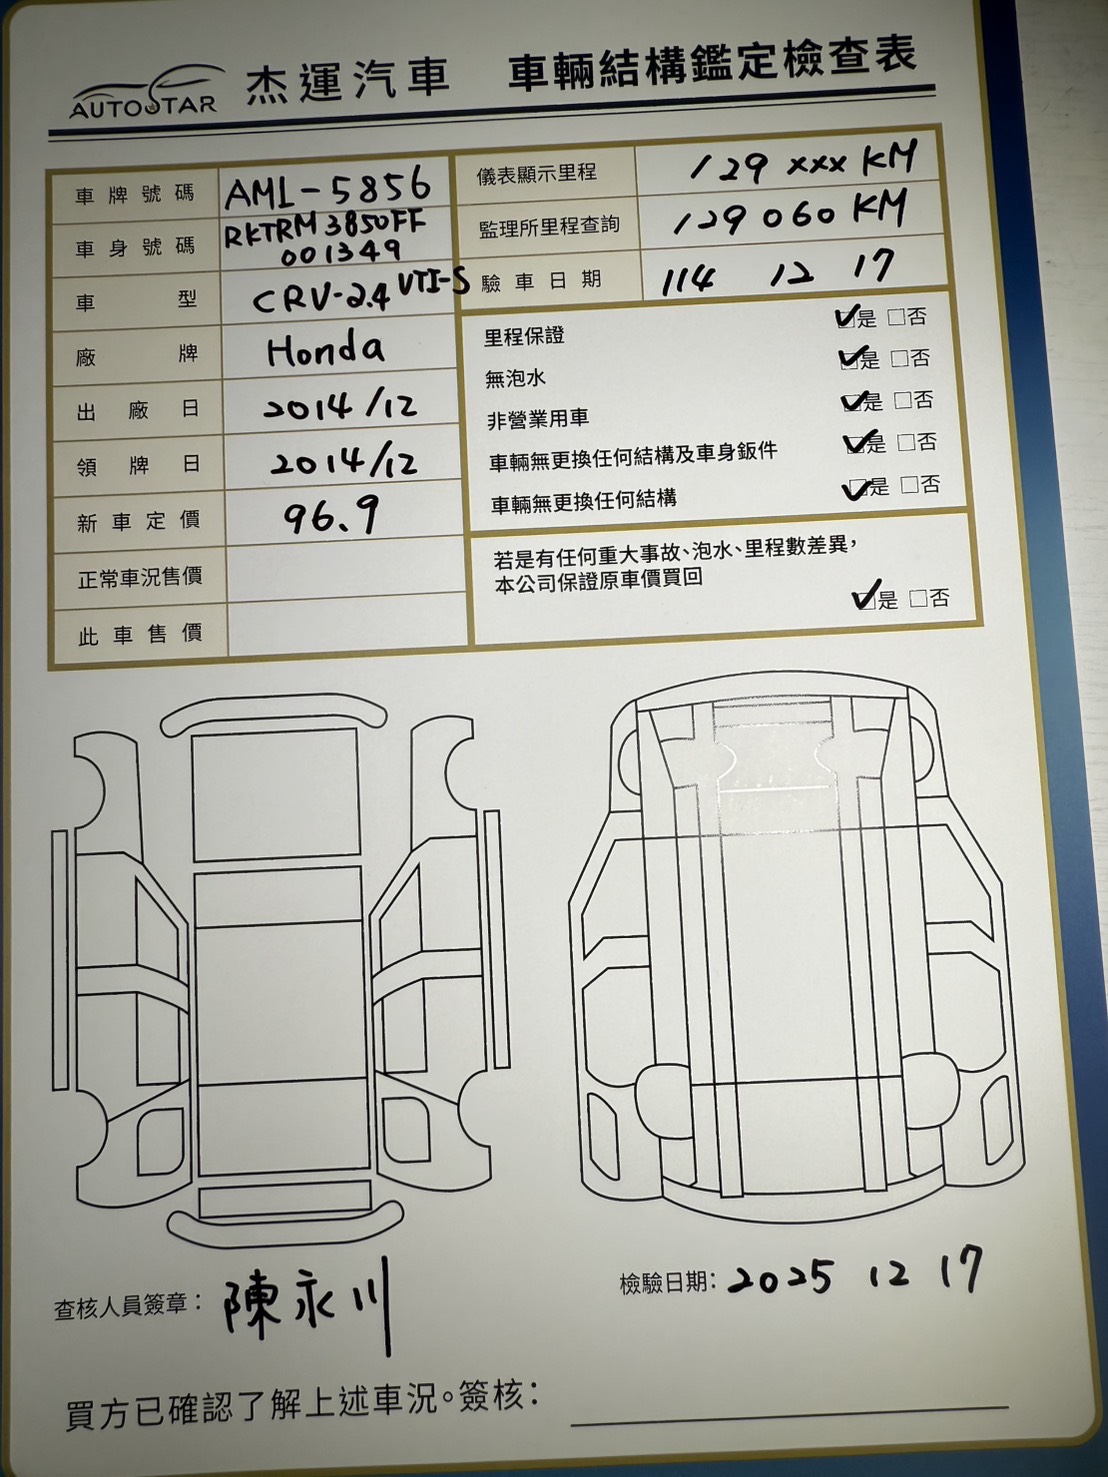 AUTOSTAR 杰運汽車 車輛結構鑑定檢查表
車牌號碼 AML-5856
車身號碼 RKTRM3850FF
001349
車型 CRV-2.4 VTI-S
廠牌 Honda
出廠日 2014/12
領牌日 2014/12
新車定價 96.9
正常車況售價
此車售價
儀表顯示里程 129xxx KM
監理所里程查詢 129060 KM
驗車日期 114 12 17
里程保證 ☑是 □否
無泡水 ☑是 □否
非營業用車 ☑是 □否
車輛無更換任何結構及車身鈑件 ☑是 □否
車輛無更換任何結構 ☑是 □否
若是有任何重大事故、泡水、里程數差異，
本公司保證原車價買回
☑是 □否
查核人員簽章： 陳永川
檢驗日期： 2025 12 17
買方已確認了解上述車況。簽核：